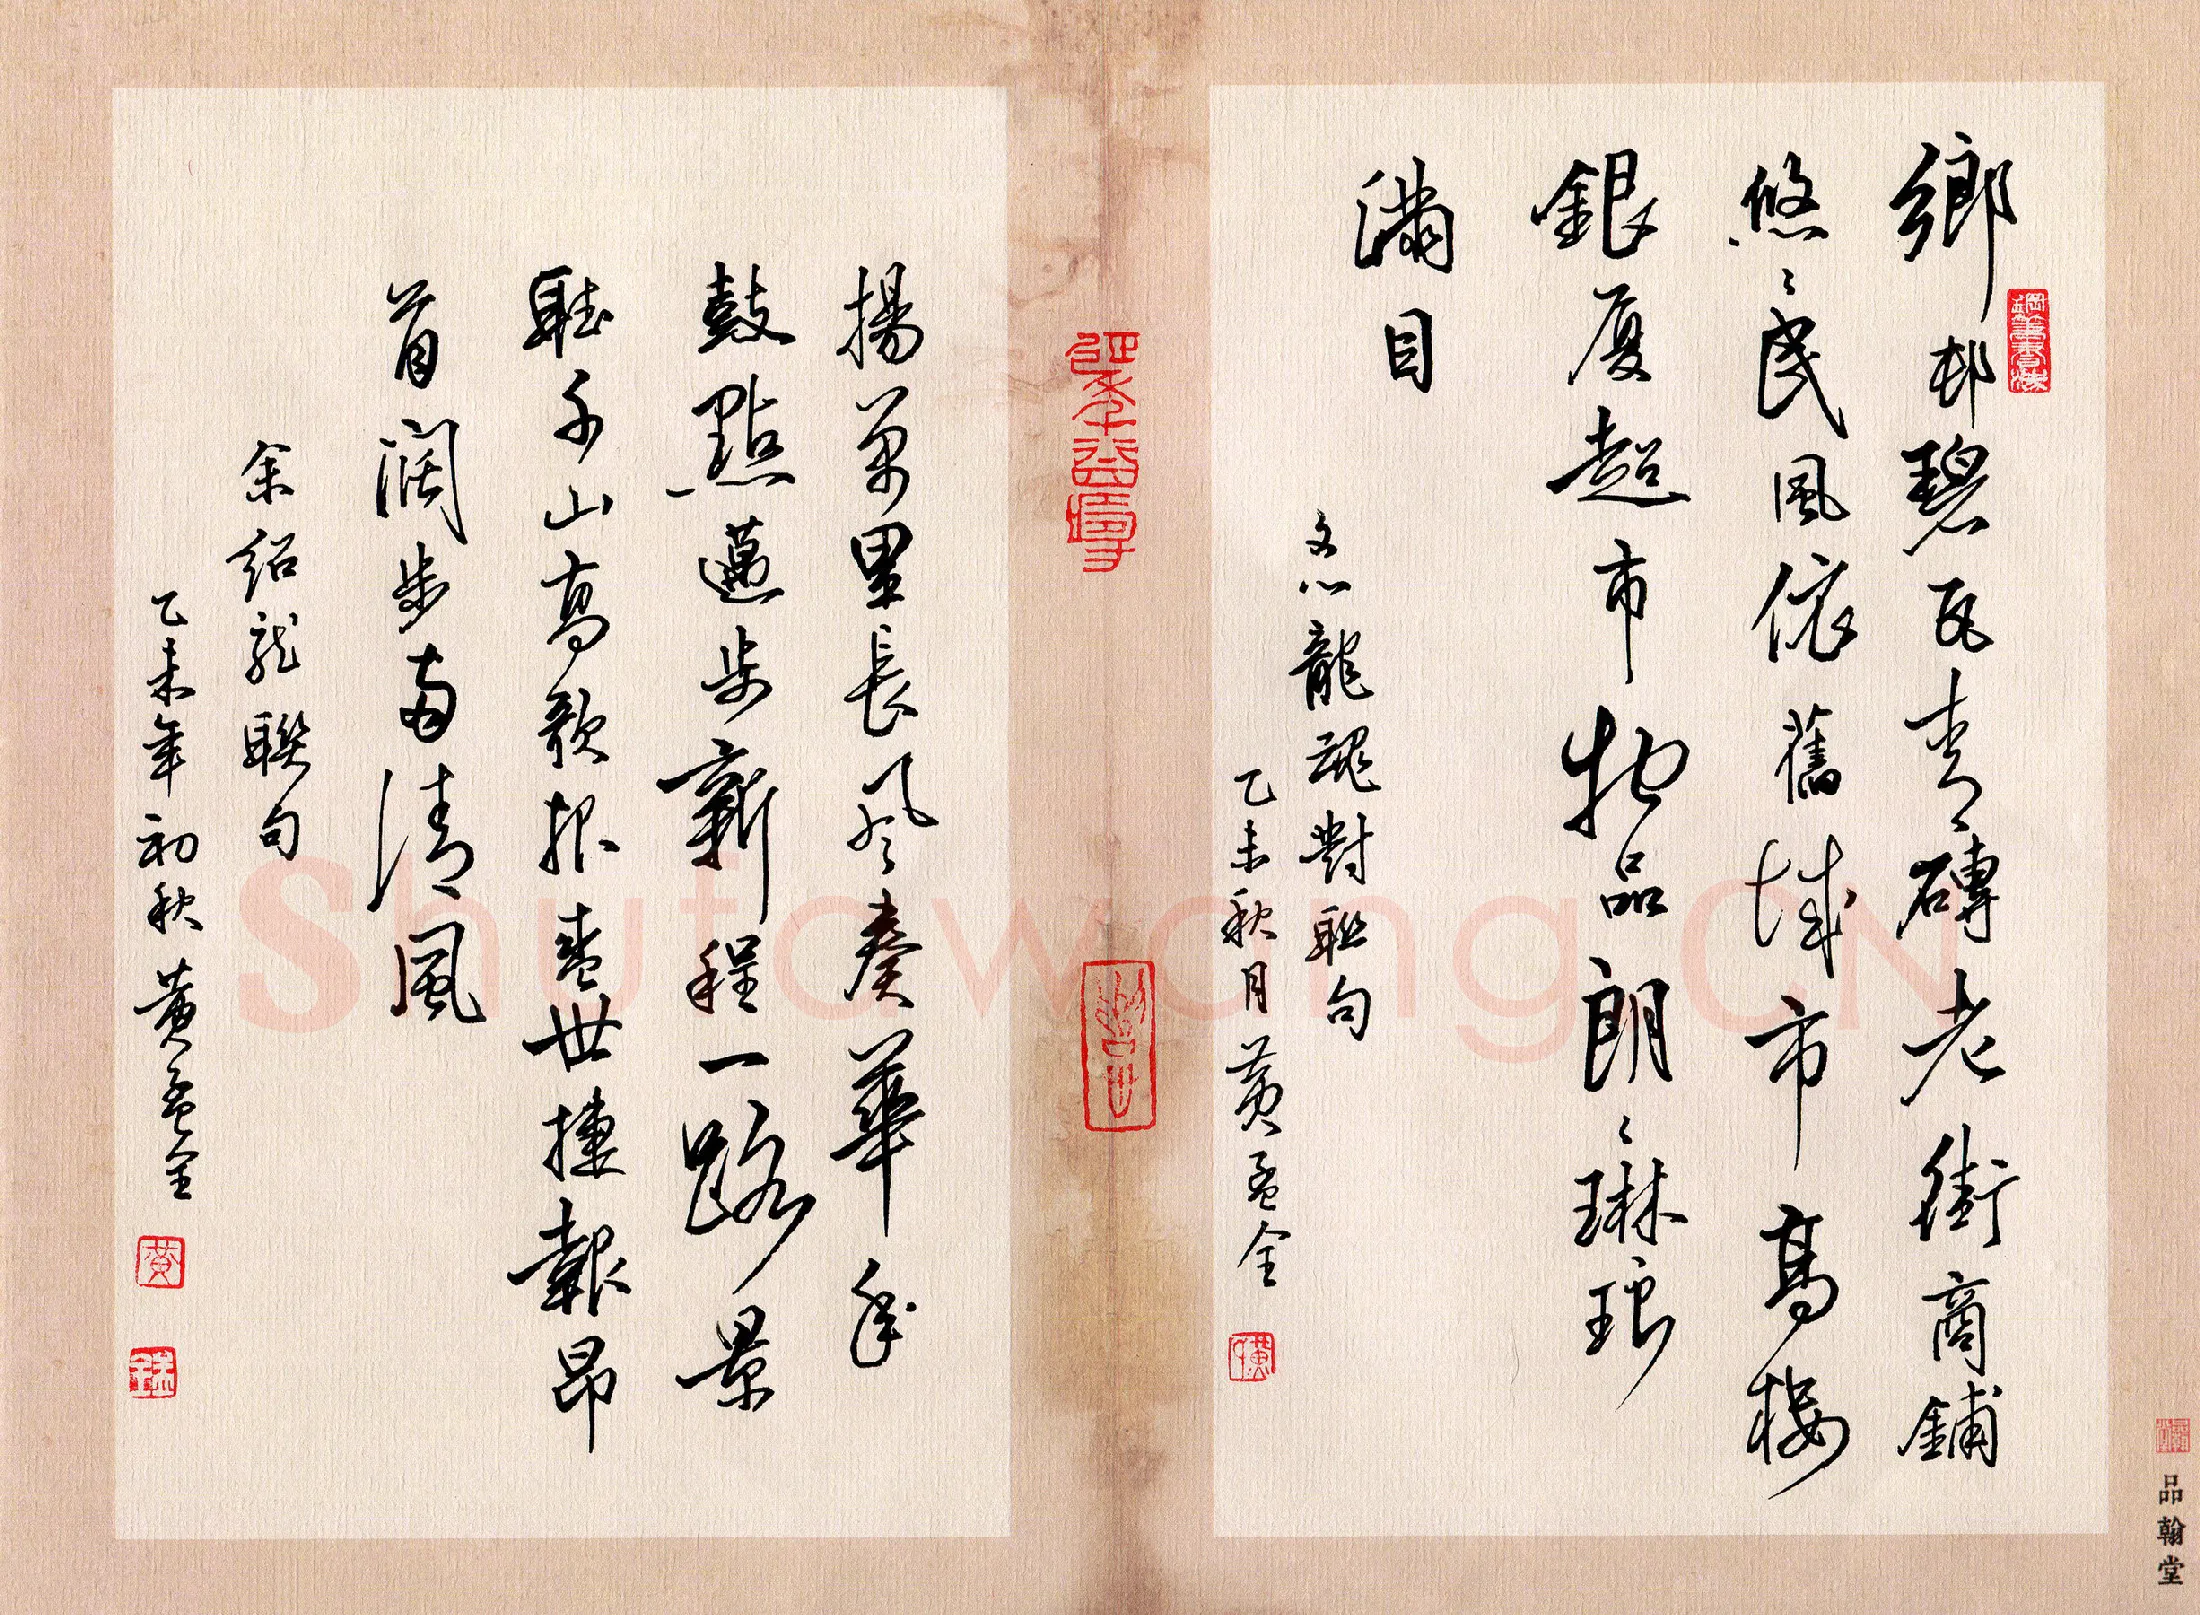 鄉邨碧瓦青磚老街商鋪
悠〻民風依舊城市高樓
銀廈超市物品朗〻琳琅
滿目
文心龍魂對聯句
乙未秋月黄孟全
揚萬里長风奏華年
鼓點邁步新程一路景
聽千山高歌报盛世捷報昂
首阔步両清風
余绍龙聯句
乙未年初秋黄孟全
黄
品翰堂
Shufawang.CN